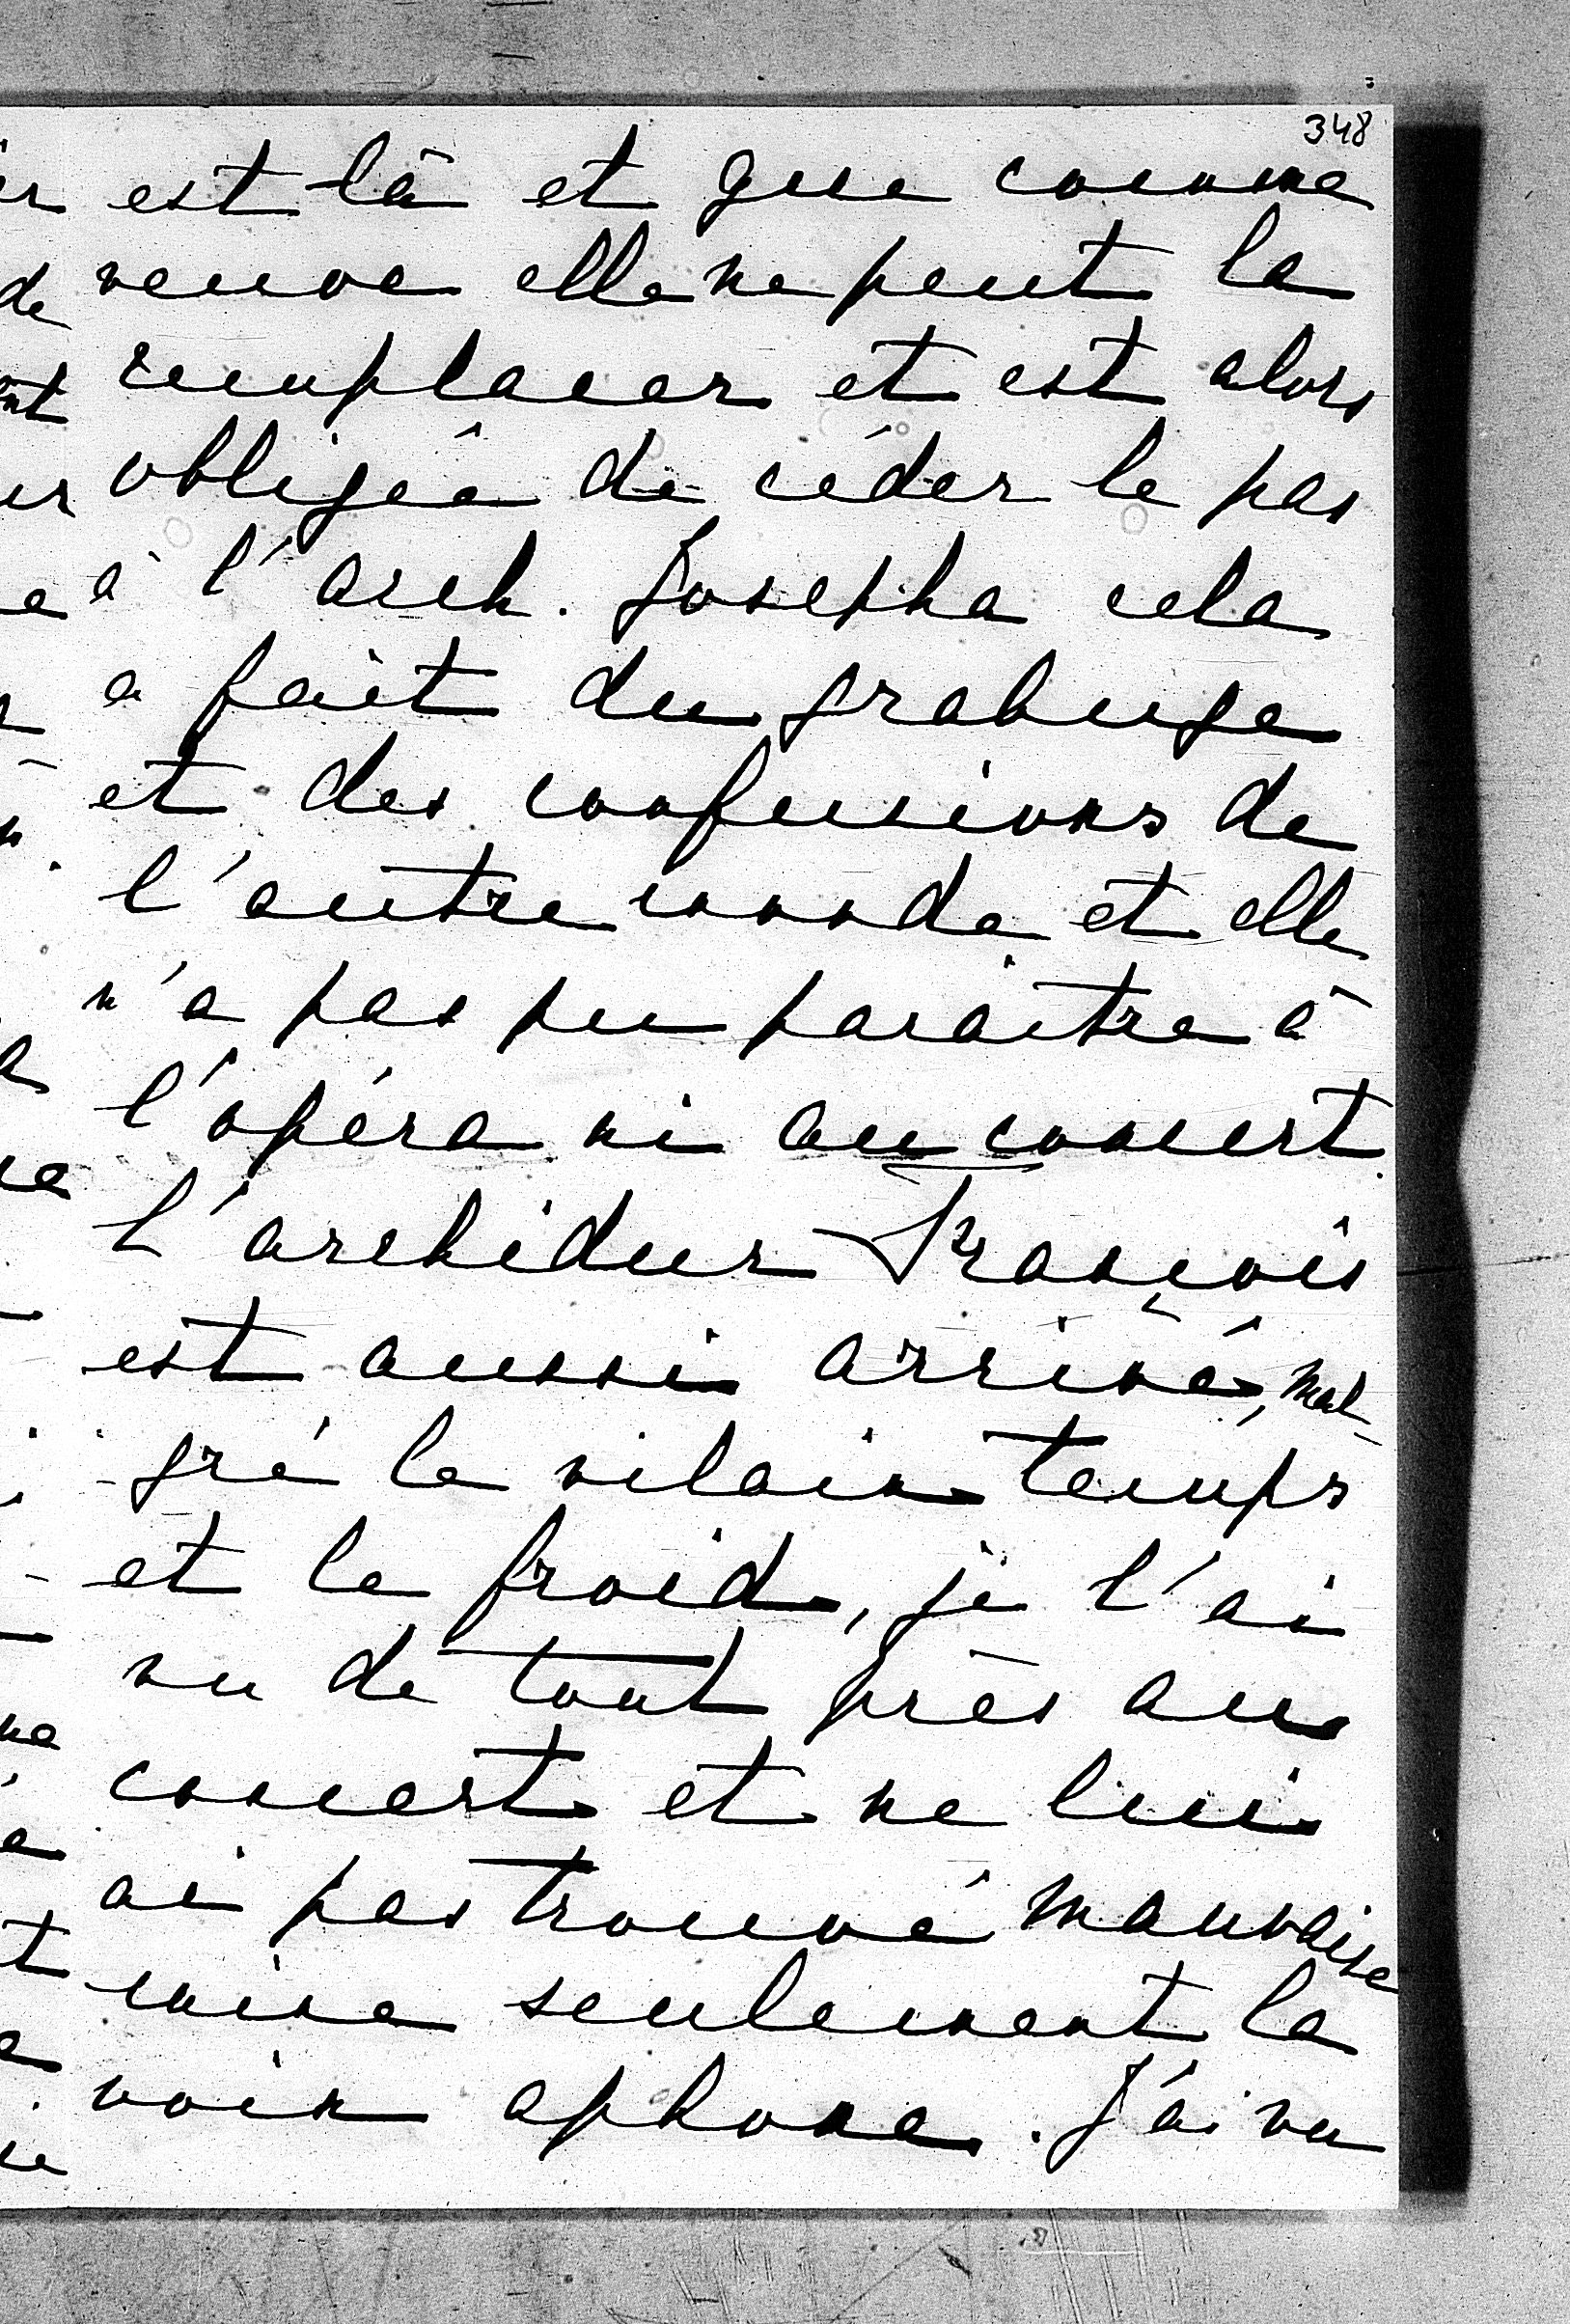 348
est là et que comme
veuve elle ne peut la
remplacer et est alors
obligée de céder le pas
à l'arch. Josepha cela
a fait du grabuge
et des confusions de
l'autre monde et elle
n'a pas pu paraitre à
l'opéra ni au concert.
L'archiduc François
est aussi arrivé, mal-
-gré le vilain temps
et le froid, je l'ai
vu de tout près au
concert et ne lui
ai pas trouvé mauvaise
mine seulement la
voix aphone. J'ai vu